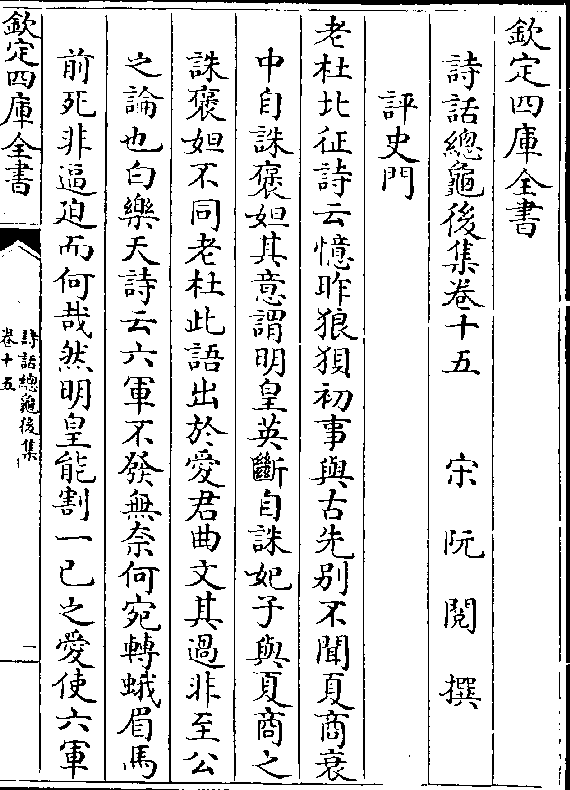 欽定四庫全書
詩話總龜後集卷十五　宋　阮閱　撰
評史門
老杜北征詩云憶昨狼狽初事與古先别不聞夏商衰
中自誅褒妲其意謂明皇英斷自誅妃子與夏商之
誅褒妲不同老杜此語出於愛君曲文其過非至公
之論也白樂天詩云六軍不發無奈何宛轉蛾眉馬
前死非逼迫而何哉然明皇能割一己之愛使六軍
欽定四庫全書
詩話總龜後集
卷十五
一